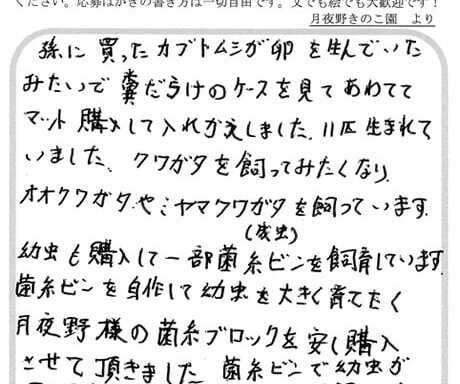 ください。応募はがきの書き方は一切自由です。文でも絵でも大歓迎です！
月夜野きのこ園　より
孫に買ったカブトムシが卵を生んでいた
みたいで糞だらけのケースを見てあわてて
マット購入して入れかえしました。11匹生まれて
いました。クワガタを飼ってみたくなり
オオクワガタやミヤマクワガタを飼っています。
(成虫)
幼虫も購入して一部菌糸ビンを飼育しています
菌糸ビンを自作して幼虫を大きく育てたく
月夜野様の菌糸ブロックを安し購入
させて頂きました。菌糸ビンで幼虫が